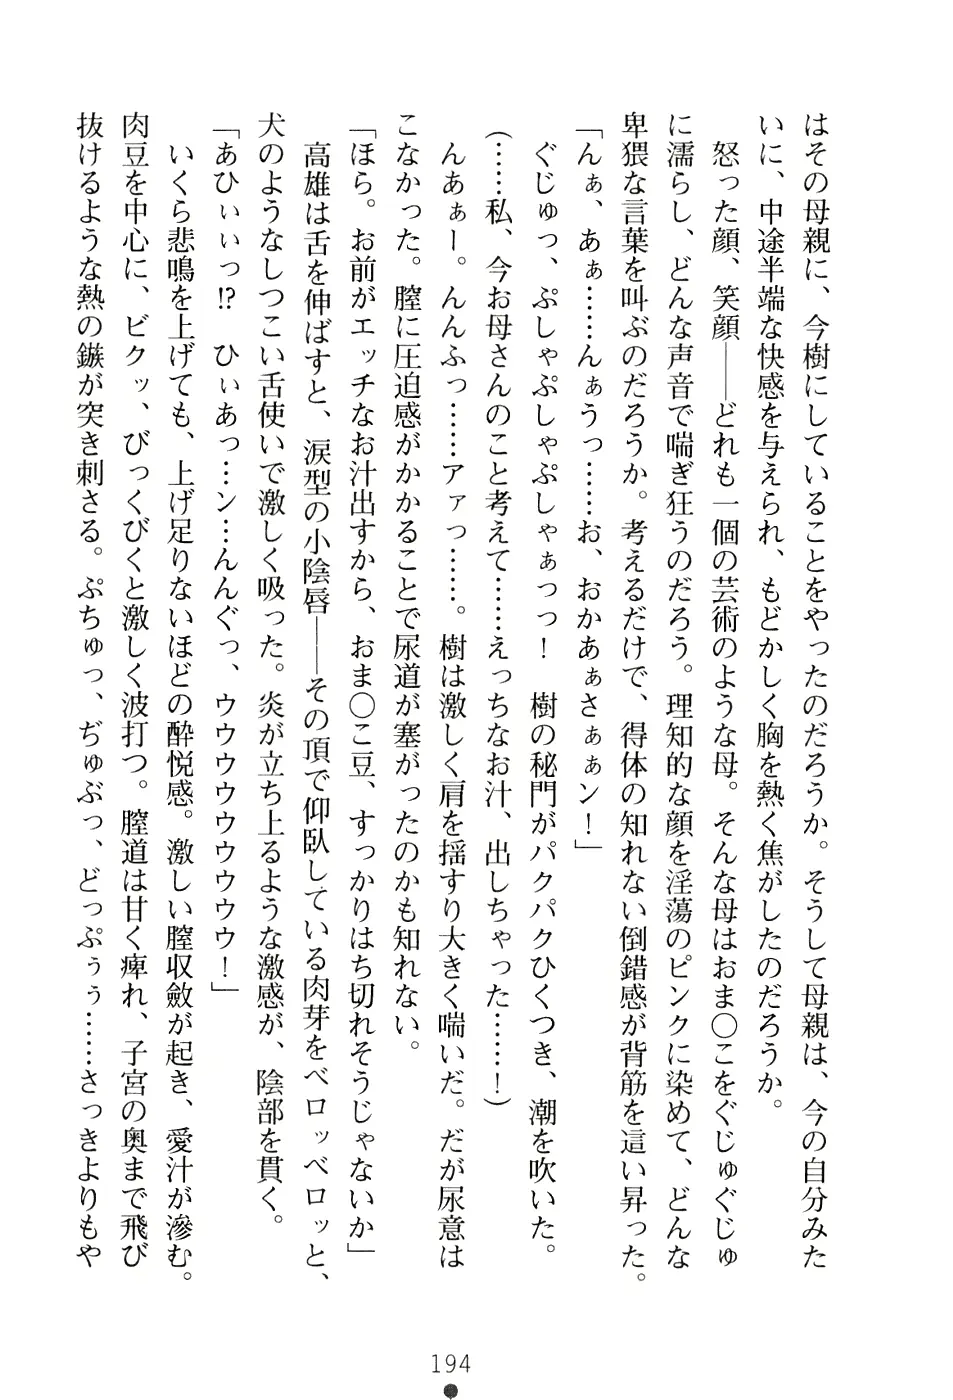 はその母親に、今樹にしていることをやったのだろうか。そうして母親は、今の自分みた
いに、中途半端な快感を与えられ、もどかしく胸を熱く焦がしたのだろうか。
怒った顔、笑顔――どれも一個の芸術のような母。そんな母はおま〇こをぐじゅぐじゅ
に濡らし、どんな声音で喘ぎ狂うのだろう。理知的な顔を淫蕩のピンクに染めて、どんな
卑猥な言葉を叫ぶのだろうか。考えるだけで、得体の知れない倒錯感が背筋を這い昇った。
「んぁ、あぁ……んぁうっ……お、おかあぁさぁぁン！」
ぐじゅっ、ぷしゃぷしゃぷしゃぁっっ！　樹の秘門がパクパクひくつき、潮を吹いた。
（……私、今お母さんのこと考えて……えっちなお汁、出しちゃった……！）
んあぁー。んんふっ……アァっ……。樹は激しく肩を揺すり大きく喘いだ。だが尿意は
こなかった。膣に圧迫感がかかることで尿道が塞がったのかも知れない。
「ほら。お前がエッチなお汁出すから、おま〇こ豆、すっかりはち切れそうじゃないか」
高雄は舌を伸ばすと、涙型の小陰唇――その頂で仰臥している肉芽をベロッベロッと、
犬のようなしつこい舌使いで激しく吸った。炎が立ち上るような激感が、陰部を貫く。
「あひぃぃっ!?　ひぃあっ…ン…んんぐっ、ウウウウウウウウ！」
いくら悲鳴を上げても、上げ足りないほどの酔悦感。激しい膣収斂が起き、愛汁が滲む。
肉豆を中心に、ビクッ、びっくびくと激しく波打つ。膣道は甘く痺れ、子宮の奥まで飛び
抜けるような熱の鏃が突き刺さる。ぷちゅっ、ぢゅぶっ、どっぷぅぅ……さっきよりもや
194